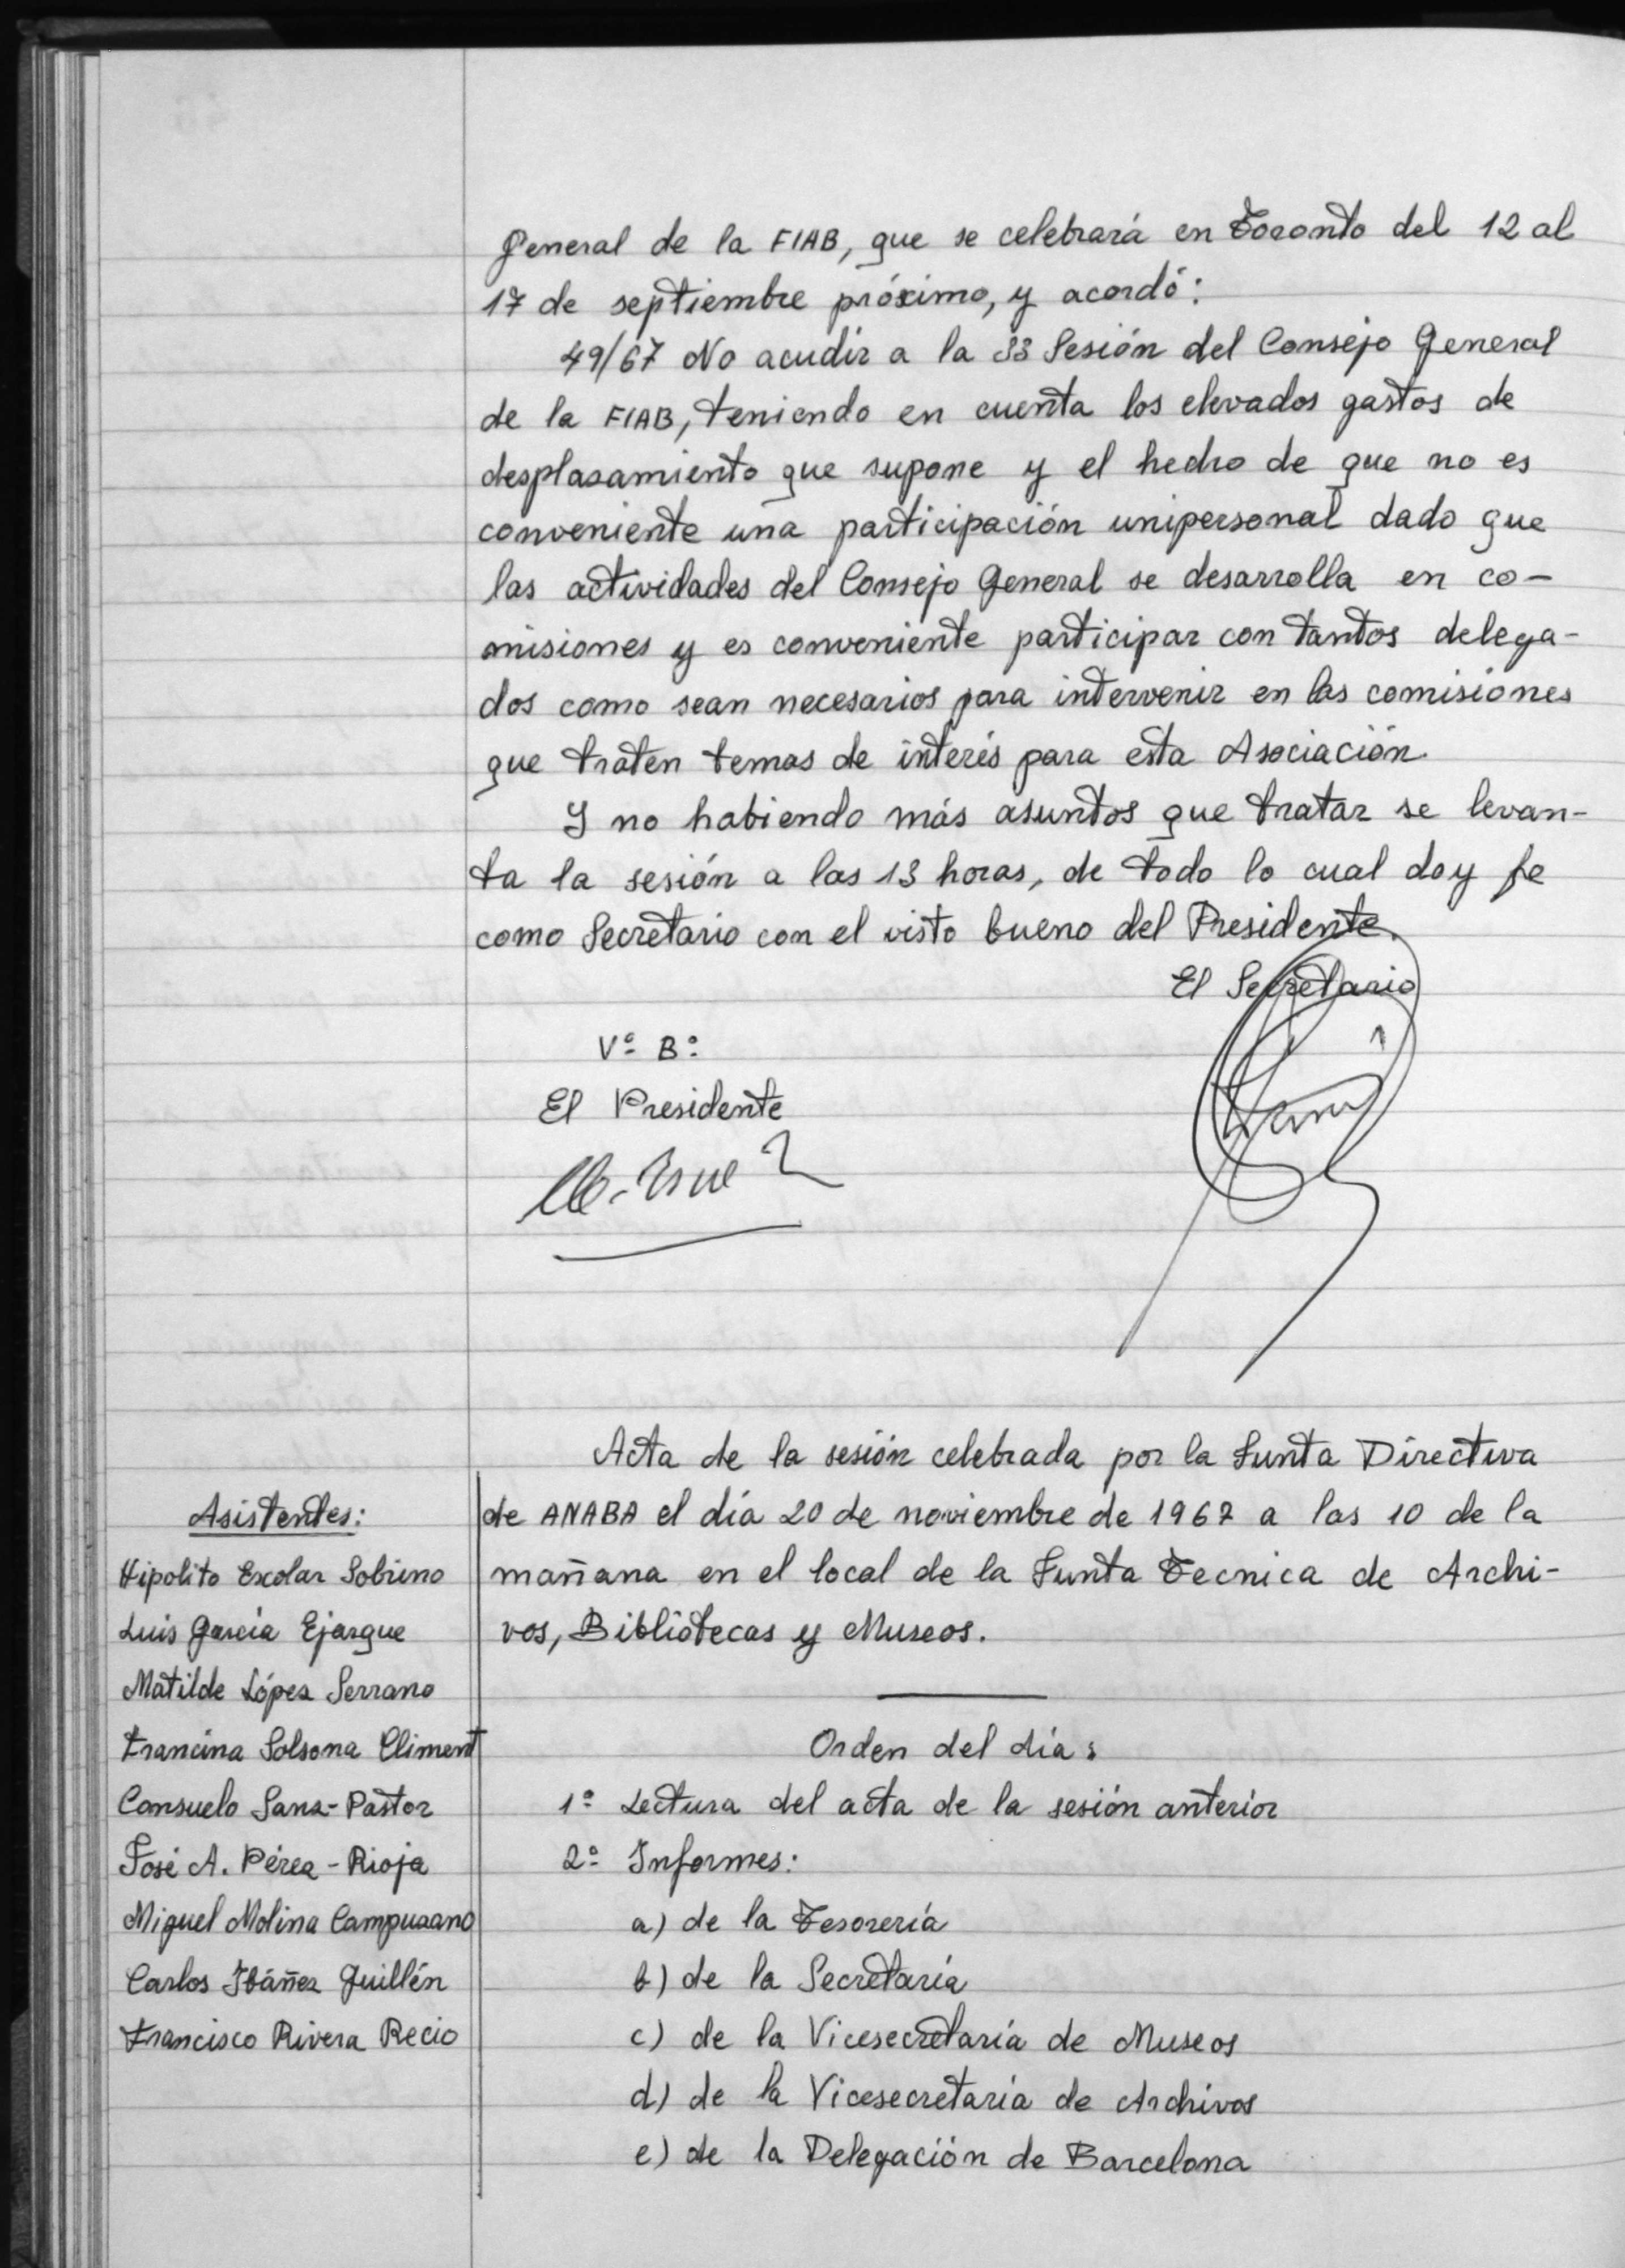 General de la FIAB, que se celebrará en Toronto del 12 al
17 de septiembre próximo, y acordó:
49/67 No acudir a la 33 Sesión del Consejo General
de la FIAB, teniendo en cuenta los elevados gastos de
desplazamiento que supone y el hecho de que no es
conveniente una participación unipersonal dado que
las actividades del Consejo General se desarrolla en co-
misiones y es conveniente participar con tantos delega-
dos como sean necesarios para intervenir en las comisiones
que traten temas de interés para esta Asociación.
Y no habiendo más asuntos que tratar se levan-
ta la sesión a las 13 horas, de todo lo cual doy fe
como Secretario con el visto bueno del Presidente.
El Secretario
Vº Bº
El Presidente
Acta de la sesión celebrada por la Junta Directiva
de ANABA el día 20 de noviembre de 1967 a las 10 de la
mañana en el local de la Junta Tecnica de Archi-
vos, Bibliotecas y Museos.
Asistentes:
Hipolito Escolar Sobrino
Luis García Ejarque
Matilde López Serrano
Francina Solsona Climent
Consuelo Sanz-Pastor
José A. Pérez-Rioja
Miguel Molina Campuzano
Carlos Ibáñez Guillén
Francisco Rivera Recio
Orden del día:
1º Lectura del acta de la sesión anterior
2º Informes:
a) de la Tesorería
b) de la Secretaría
c) de la Vicesecretaría de Museos
d) de la Vicesecretaría de Archivos
e) de la Delegación de Barcelona